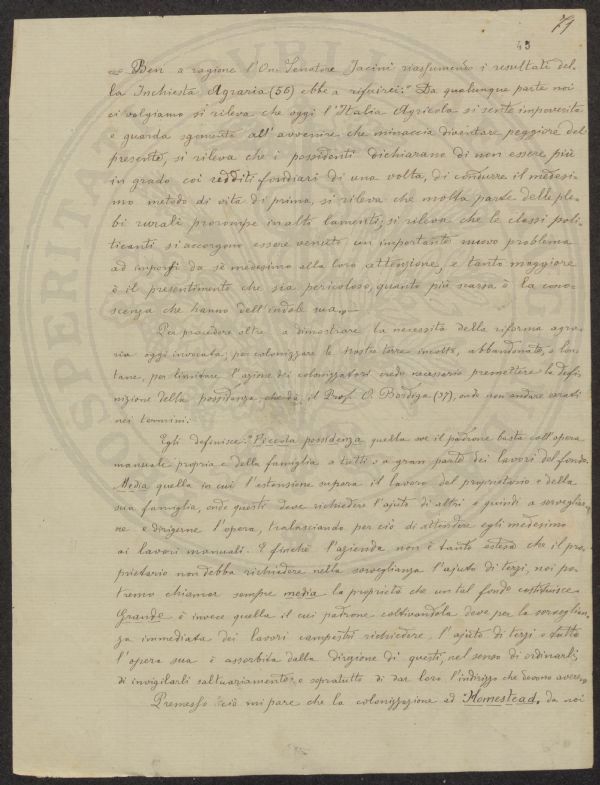 79
43
Ben a ragione l'On. Senatore Jacini riassumendo i resultati del-
la Inchiesta Agraria (56) ebbe a riferirci: "Da qualunque parte noi
ci volgiamo si rileva che oggi l'Italia Agricola si sente impoverita
e guarda sgomenta all'avvenire che minaccia diventare peggiore del
presente, si rileva che i possidenti dichiarano di non essere più
in grado coi redditi fondiari di una volta, di condurre il medesi-
mo metodo di vita di prima, si rileva che molta parte delle ple-
bi rurali prorompe in alti lamenti; si rileva che le classi poli-
ticanti si accorgono essere venuto un importante nuovo problema
ad imporsi da sè medesimo alla loro attenzione, e tanto maggiore
è il presentimento che sia pericoloso, quanto più scarsa è la cono-
scenza che hanno dell'indole sua.„—
Per procedere oltre a dimostrare la necessità della riforma agra-
ria oggi invocata, per colonizzare le nostre terre incolte, abbandonate, o lon-
tane, per limitare l'azione dei colonizzatori credo necessario premettere la defi-
nizione della possidenza che dà il Prof. O. Bordiga (57), onde non andare errati
nei termini:
Egli definisce: "Piccola possidenza quella ove il padrone basta coll'opera
manuale propria e della famiglia a tutti o a gran parte dei lavori del fondo.
Media quella in cui l'estensione supera il lavoro del proprietario e della
sua famiglia, onde questi deve richiedere l'ajuto di altri e quindi a sorvegliar-
ne e dirigerne l'opera, tralasciando perciò di attendere egli medesimo
ai lavori manuali. E finchè l'azienda non è tanto estesa che il pro-
prietario non debba richiedere nella sorveglianza l'ajuto di terzi, noi po-
tremo chiamar sempre media la proprietà che un tal fondo costituisce.
Grande è invece quella il cui padrone coltivandola deve per la sorveglian-
za immediata dei lavori campestri richiedere l'ajuto di terzi e tutta
l'opera sua è assorbita dalla dirigione di questi, nel senso di ordinarli,
di invigilarli saltuariamente e sopratutto di dar loro l'indirizzo che devono avere„
Premesso ciò mi pare che la colonizzazione ad "Homestead„ da noi